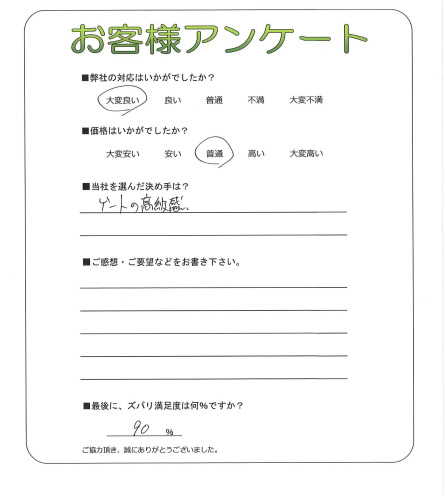 お客様アンケート
■弊社の対応はいかがでしたか?
大変良い 良い 普通 不満 大変不満
■価格はいかがでしたか?
大変安い 安い 普通 高い 大変高い
■当社を選んだ決め手は?
ゲートの高級感
■ご感想・ご要望などをお書き下さい。
■最後に、ズバリ満足度は何%ですか?
90 %
ご協力頂き、誠にありがとうございました。